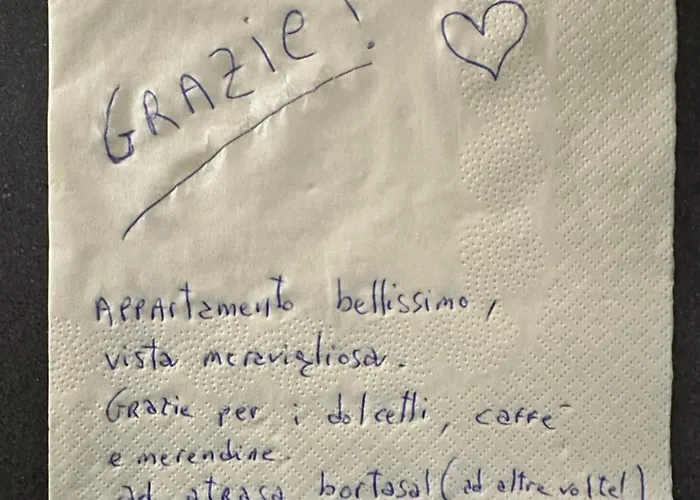 GRAZIE!
APPArtamento bellissimo,
vista meravigliosa.
Grazie per i dolcetti, caffè
e merendine.
ad (ad altre volte!)